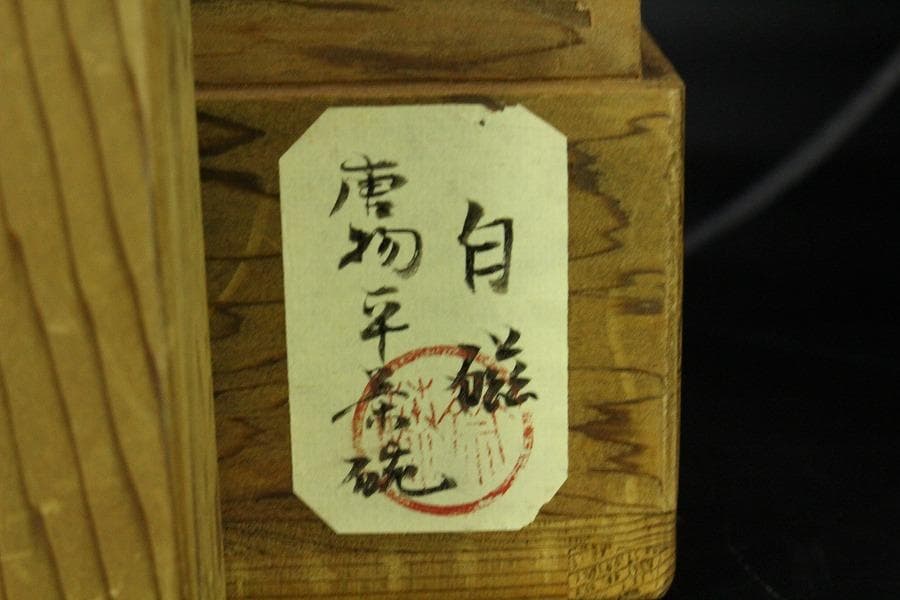 白磁
唐物平茶碗